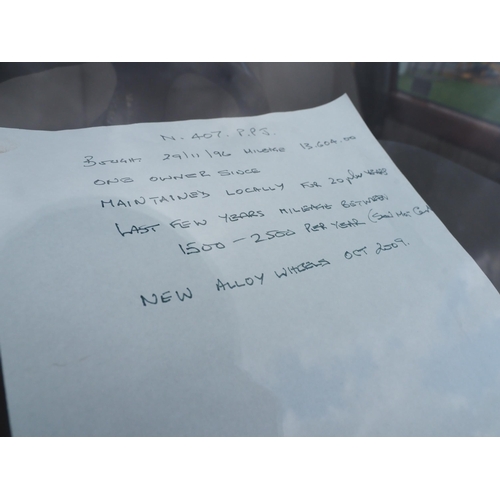 N. 407. P.P.J.
BOUGHT 29/11/96 MILEAGE 13.604.00
ONE OWNER SINCE
MAINTAINED LOCALLY FOR 20 YEARS
LAST FEW YEARS MILEAGE BETWEEN
1500 - 2500 PER YEAR (SEE
NEW ALLOY WHEELS OCT 2009.